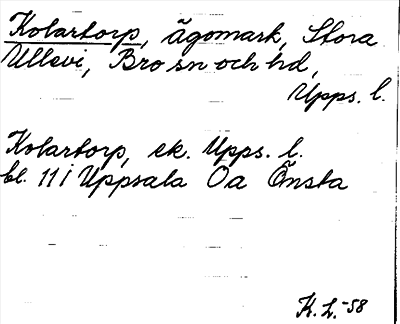 Kolartorp, ägomark, Stora
Ullevi, Bro sn och hd,
Upps. l.
Kolartorp, ek. Upps. l.
bl. 11 i Uppsala Öa Önsta
K. L. -58